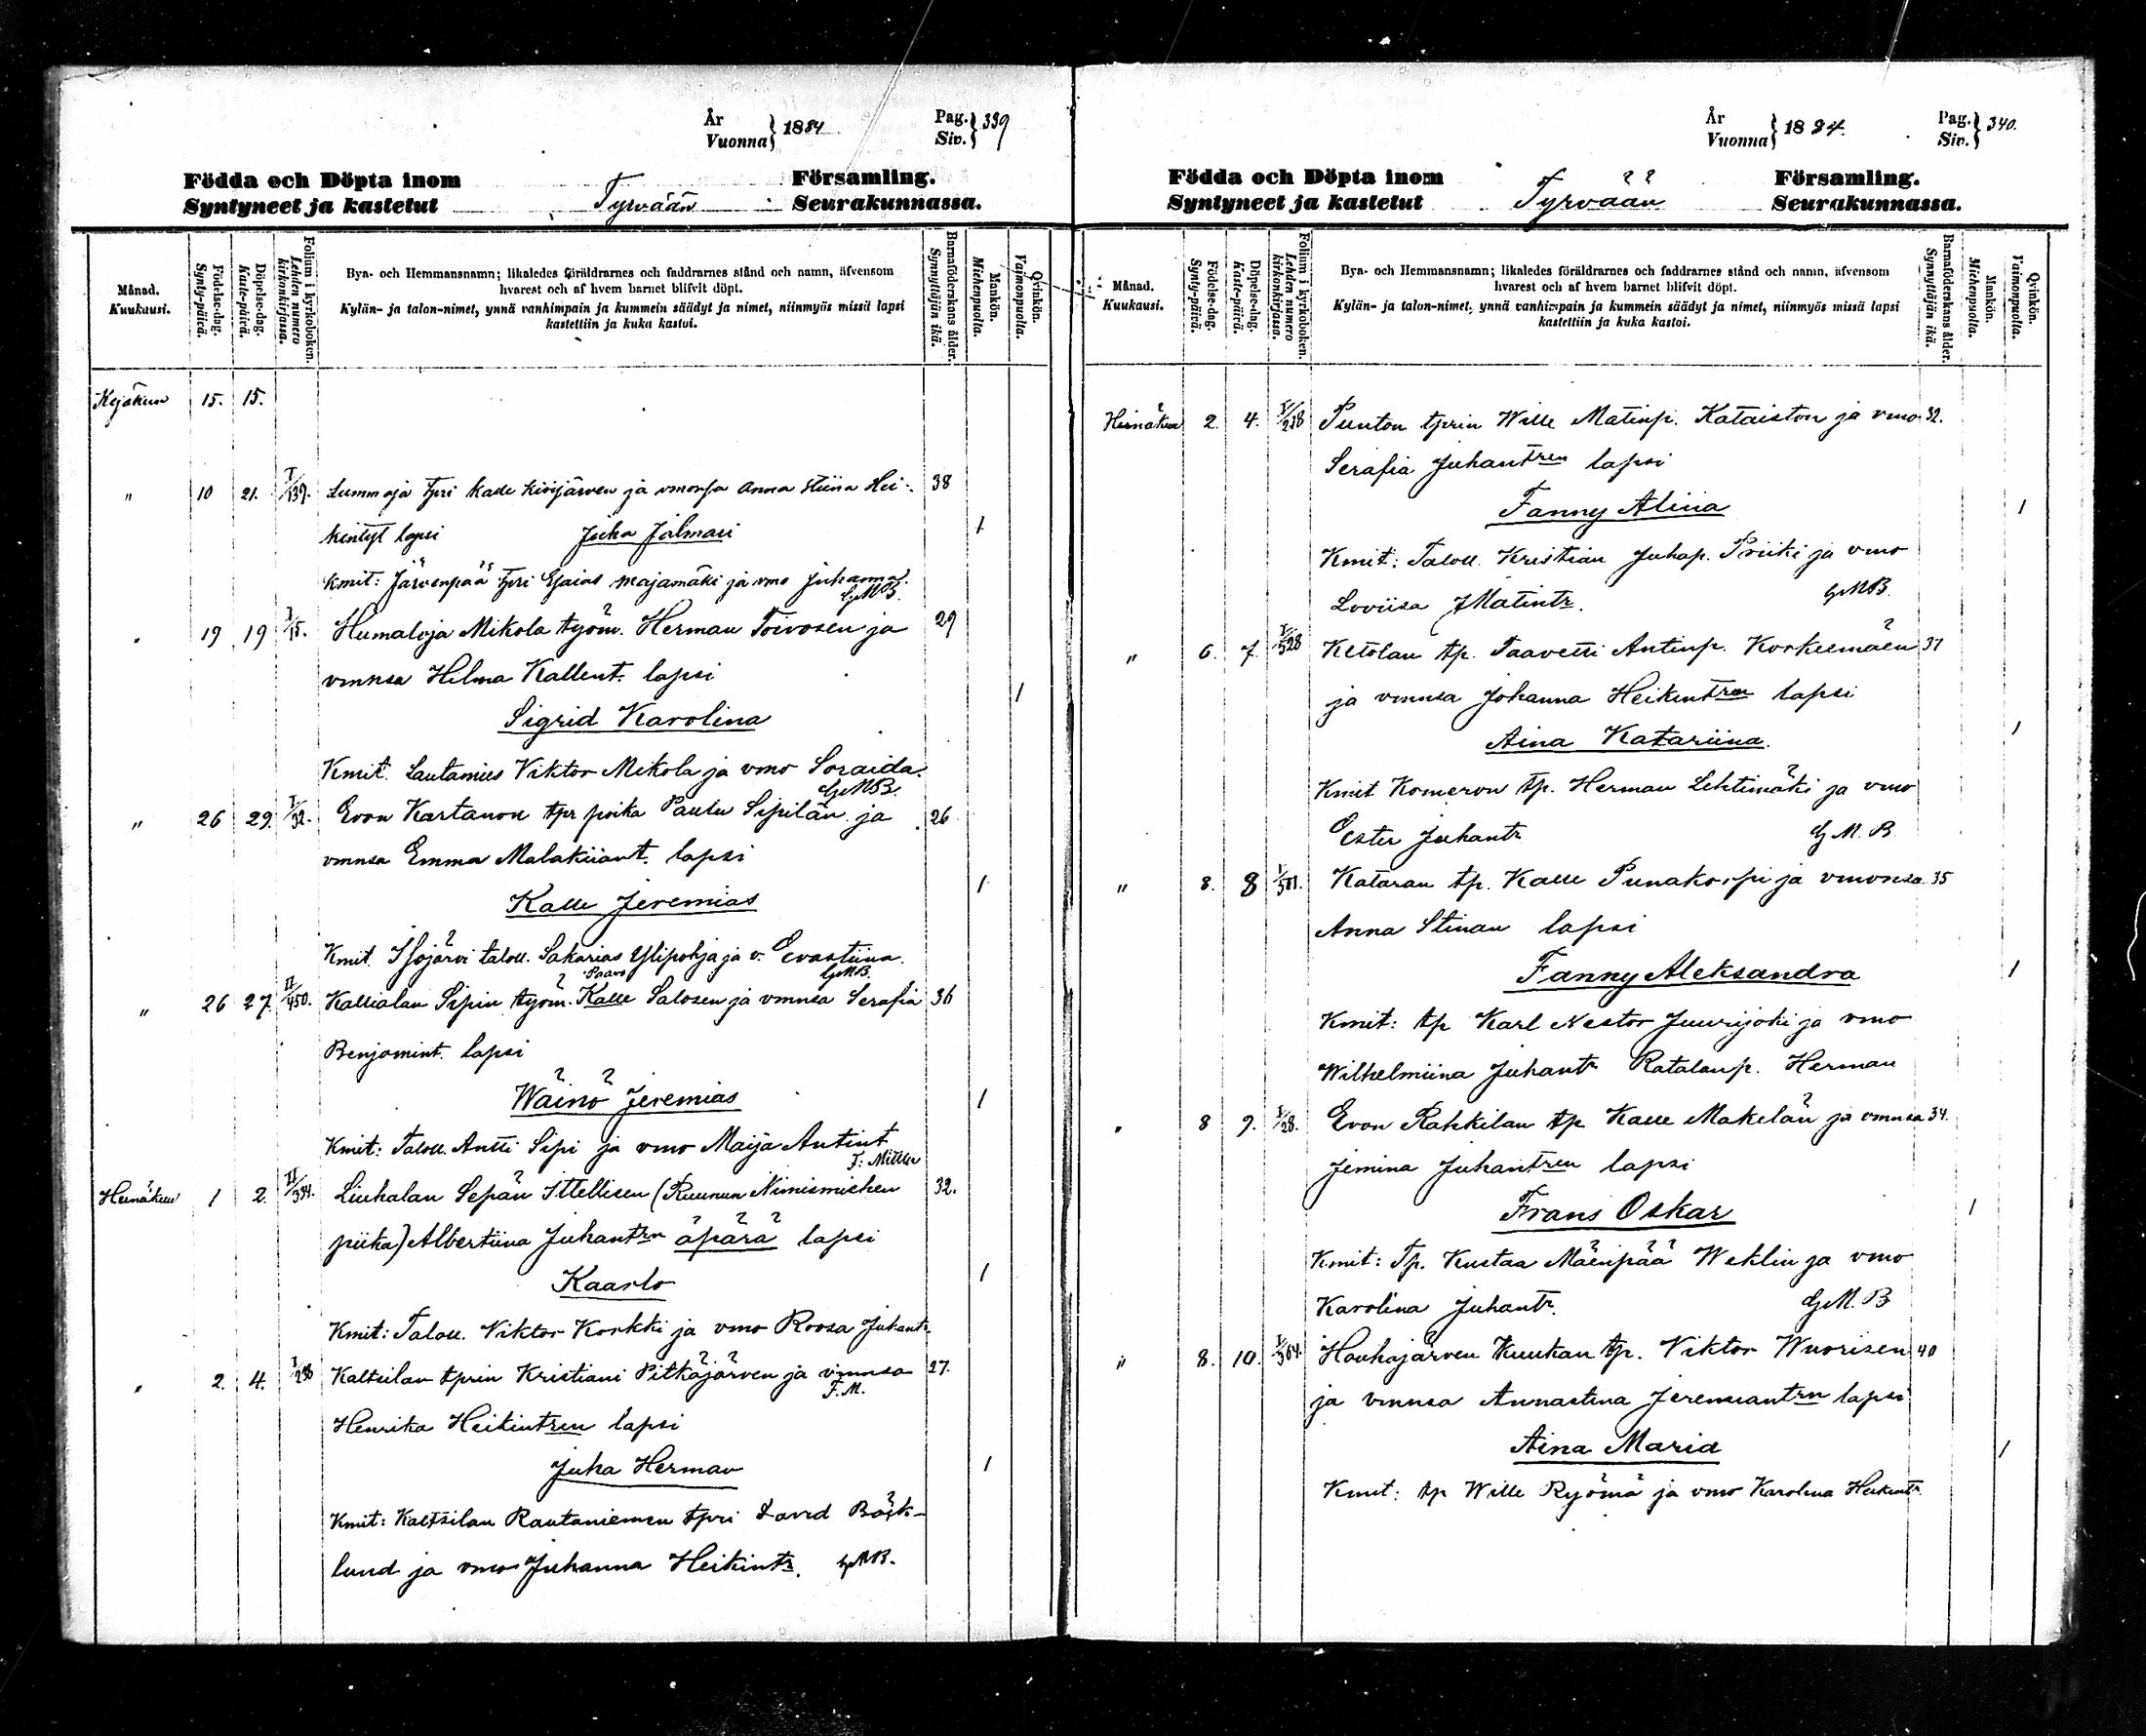 År
Vuonna } 1884
Pag.
Siv. } 339
Födda och Döpta inom
Syntyneet ja kastetut
Tyrvään
Församling.
Seurakunnassa.
Månad.
Kuukausi.
Födelse-dag.
Synty-päivä.
Döpelse-dag.
Kaste-päivä.
Folium i kyrkoboken.
Lehden numero kirkonkirjassa.
Bya- och Hemmansnamn; likaledes föräldrarnes och faddrarnes stånd och namn, äfvensom
hvarest och af hvem barnet blifvit döpt.
Kylän- ja talon-nimet, ynnä vanhimpain ja kummein säädyt ja nimet, niinmyös missä lapsi
kastettiin ja kuka kastoi.
Barnaföderskans ålder.
Synnyttäjäin ikä.
Mankön.
Miehenpuolta.
Qvinkön.
Vaimonpuolta.
Kesäkuu 15. 15.
" 10 21. I/139. Lummaja tpri Kalle Kivijärven ja vmonsa Anna Stiina Hei- 38
kintyt lapsi Juha Jalmari 1
Kmit: Järvenpää tpri Esaias Majamäki ja vmo Juhanna.
G.M.B.
" 19 19 I/15. Humaloja Mikola työm. Herman Toivosen ja 29
vmnsa Helma Kallent. lapsi
Sigrid Karolina 1
Kmit. Lautamies Viktor Mikola ja vmo Soraida.
G.M.B.
" 26 29. I/32. Evon Kartanon tpr poika Paulu Sipilän ja 26
vmnsa Emma Malakiant. lapsi
Kalle Jeremias 1
Kmit. Isojärvi taloll. Sakarias Ylipohja ja v. Evastiina.
Paavo G.M.B.
" 26 27. II/450. Kallialan Sipin työm. Kalle Salosen ja vmnsa Serafia 36
Benjamint. lapsi
Wäinö Jeremias 1
Kmit: Taloll. Antti Sipi ja vmo Maija Antint
F: Mittler
Heinäkuu 1 2. II/334. Liuhalan Sepän Ittellisen (Ruunun Nimismiehen 32.
piika) Albertiina Juhantrn äpärä lapsi
Kaarlo 1
Kmit: Taloll. Viktor Korkki ja vmo Roosa Juhant.
" 2. 4. I/238 Kaltsilan tprin Kristiani Pitkäjärven ja vmnsa 27.
F.M.
Henrika Heikintren lapsi
Juha Herman 1
Kmit: Kaltsilan Rautaniemen tpri David Bäck-
lund ja vmo Juhanna Heikintr. G.M.B.
År
Vuonna } 1884.
Pag.
Siv. } 340.
Födda och Döpta inom
Syntyneet ja kastetut
Tyrvään
Församling.
Seurakunnassa.
Månad.
Kuukausi.
Födelse-dag.
Synty-päivä.
Döpelse-dag.
Kaste-päivä.
Folium i kyrkoboken.
Lehden numero kirkonkirjassa.
Bya- och Hemmansnamn; likaledes föräldrarnes och faddrarnes stånd och namn, äfvensom
hvarest och af hvem barnet blifvit döpt.
Kylän- ja talon-nimet, ynnä vanhimpain ja kummein säädyt ja nimet, niinmyös missä lapsi
kastettiin ja kuka kastoi.
Barnaföderskans ålder.
Synnyttäjäin ikä.
Mankön.
Miehenpuolta.
Qvinkön.
Vaimonpuolta.
Heinäkuu 2. 4. I/238 Punton tprin Wille Matinp. Kataiston ja vmo 32.
Serafia Juhantren lapsi
Fanny Aliina 1
Kmit: Taloll. Kristian Juhap. Priiki ja vmo
Loviisa Matintr. G.M.B.
" 6. 7. I/528 Ketolan tp. Taavetti Antinp. Korkeemäen 37
ja vmnsa Johanna Heikintren lapsi
Aina Katariina. 1
Kmit Komeron tp. Herman Lehtimäki ja vmo
Ester Juhantr G.M.B.
" 8. 8 I/501. Kataran tp. Kalle Punakorpi ja vmonsa 35
Anna Stinan lapsi
Fanny Aleksandra 1
Kmit: tp Karl Nestor Juurijoki ja vmo
Wilhelmiina Juhantr Ratalanp. Herman
" 8 9. I/28. Evon Rahkilan tp Kalle Makelän ja vmnsa 34.
Jemina Juhantren lapsi
Frans Oskar 1
Kmit: Tp. Kustaa Mäenpää Weklin ja vmo
Karolina Juhantr. G.M.B
" 8. 10. I/364. Houhajärven Kuukan tp. Viktor Wuorisen 40
ja vmnsa Annastina Jeremiantrn lapsi
Aina Maria 1
Kmit: tp Wille Ryömä ja vmo Karolina Heikintr.